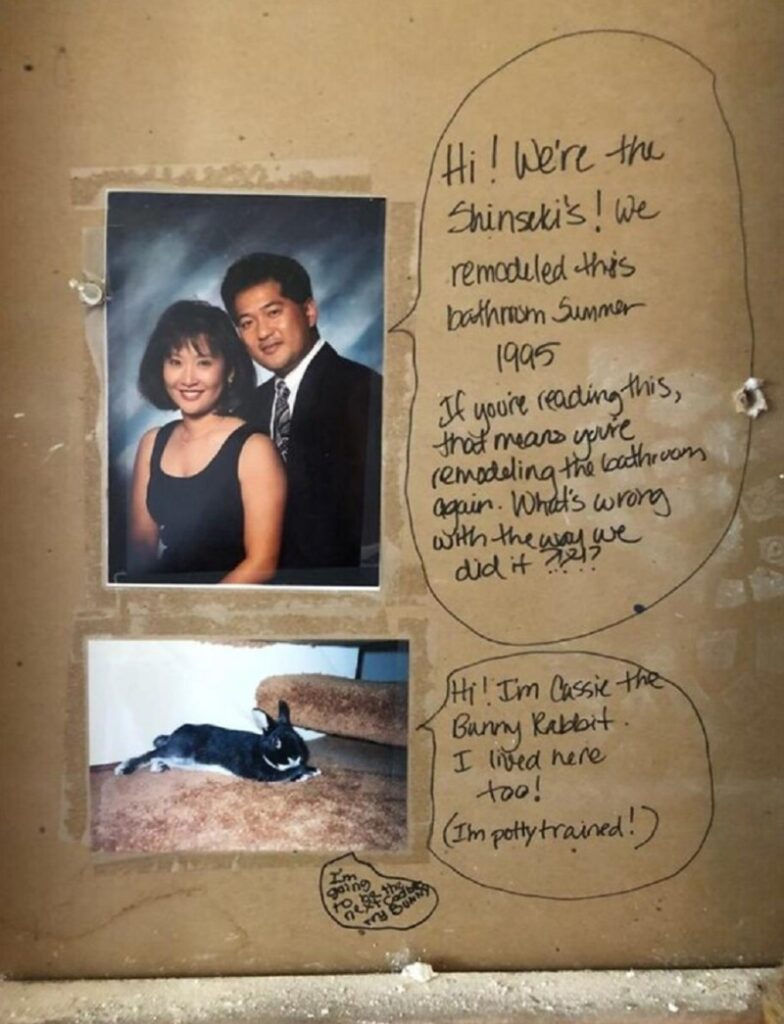 Hi! We're the
Shinseki's! We
remodeled this
bathroom Summer
1995
If you're reading this,
that means you're
remodeling the bathroom
again. What's wrong
with the way we
did it ?!?!?
Hi! I'm Cassie the
Bunny Rabbit.
I lived here
too!
(I'm potty trained!)
I'm
going
to be the
next Cadbu
rry Bunny